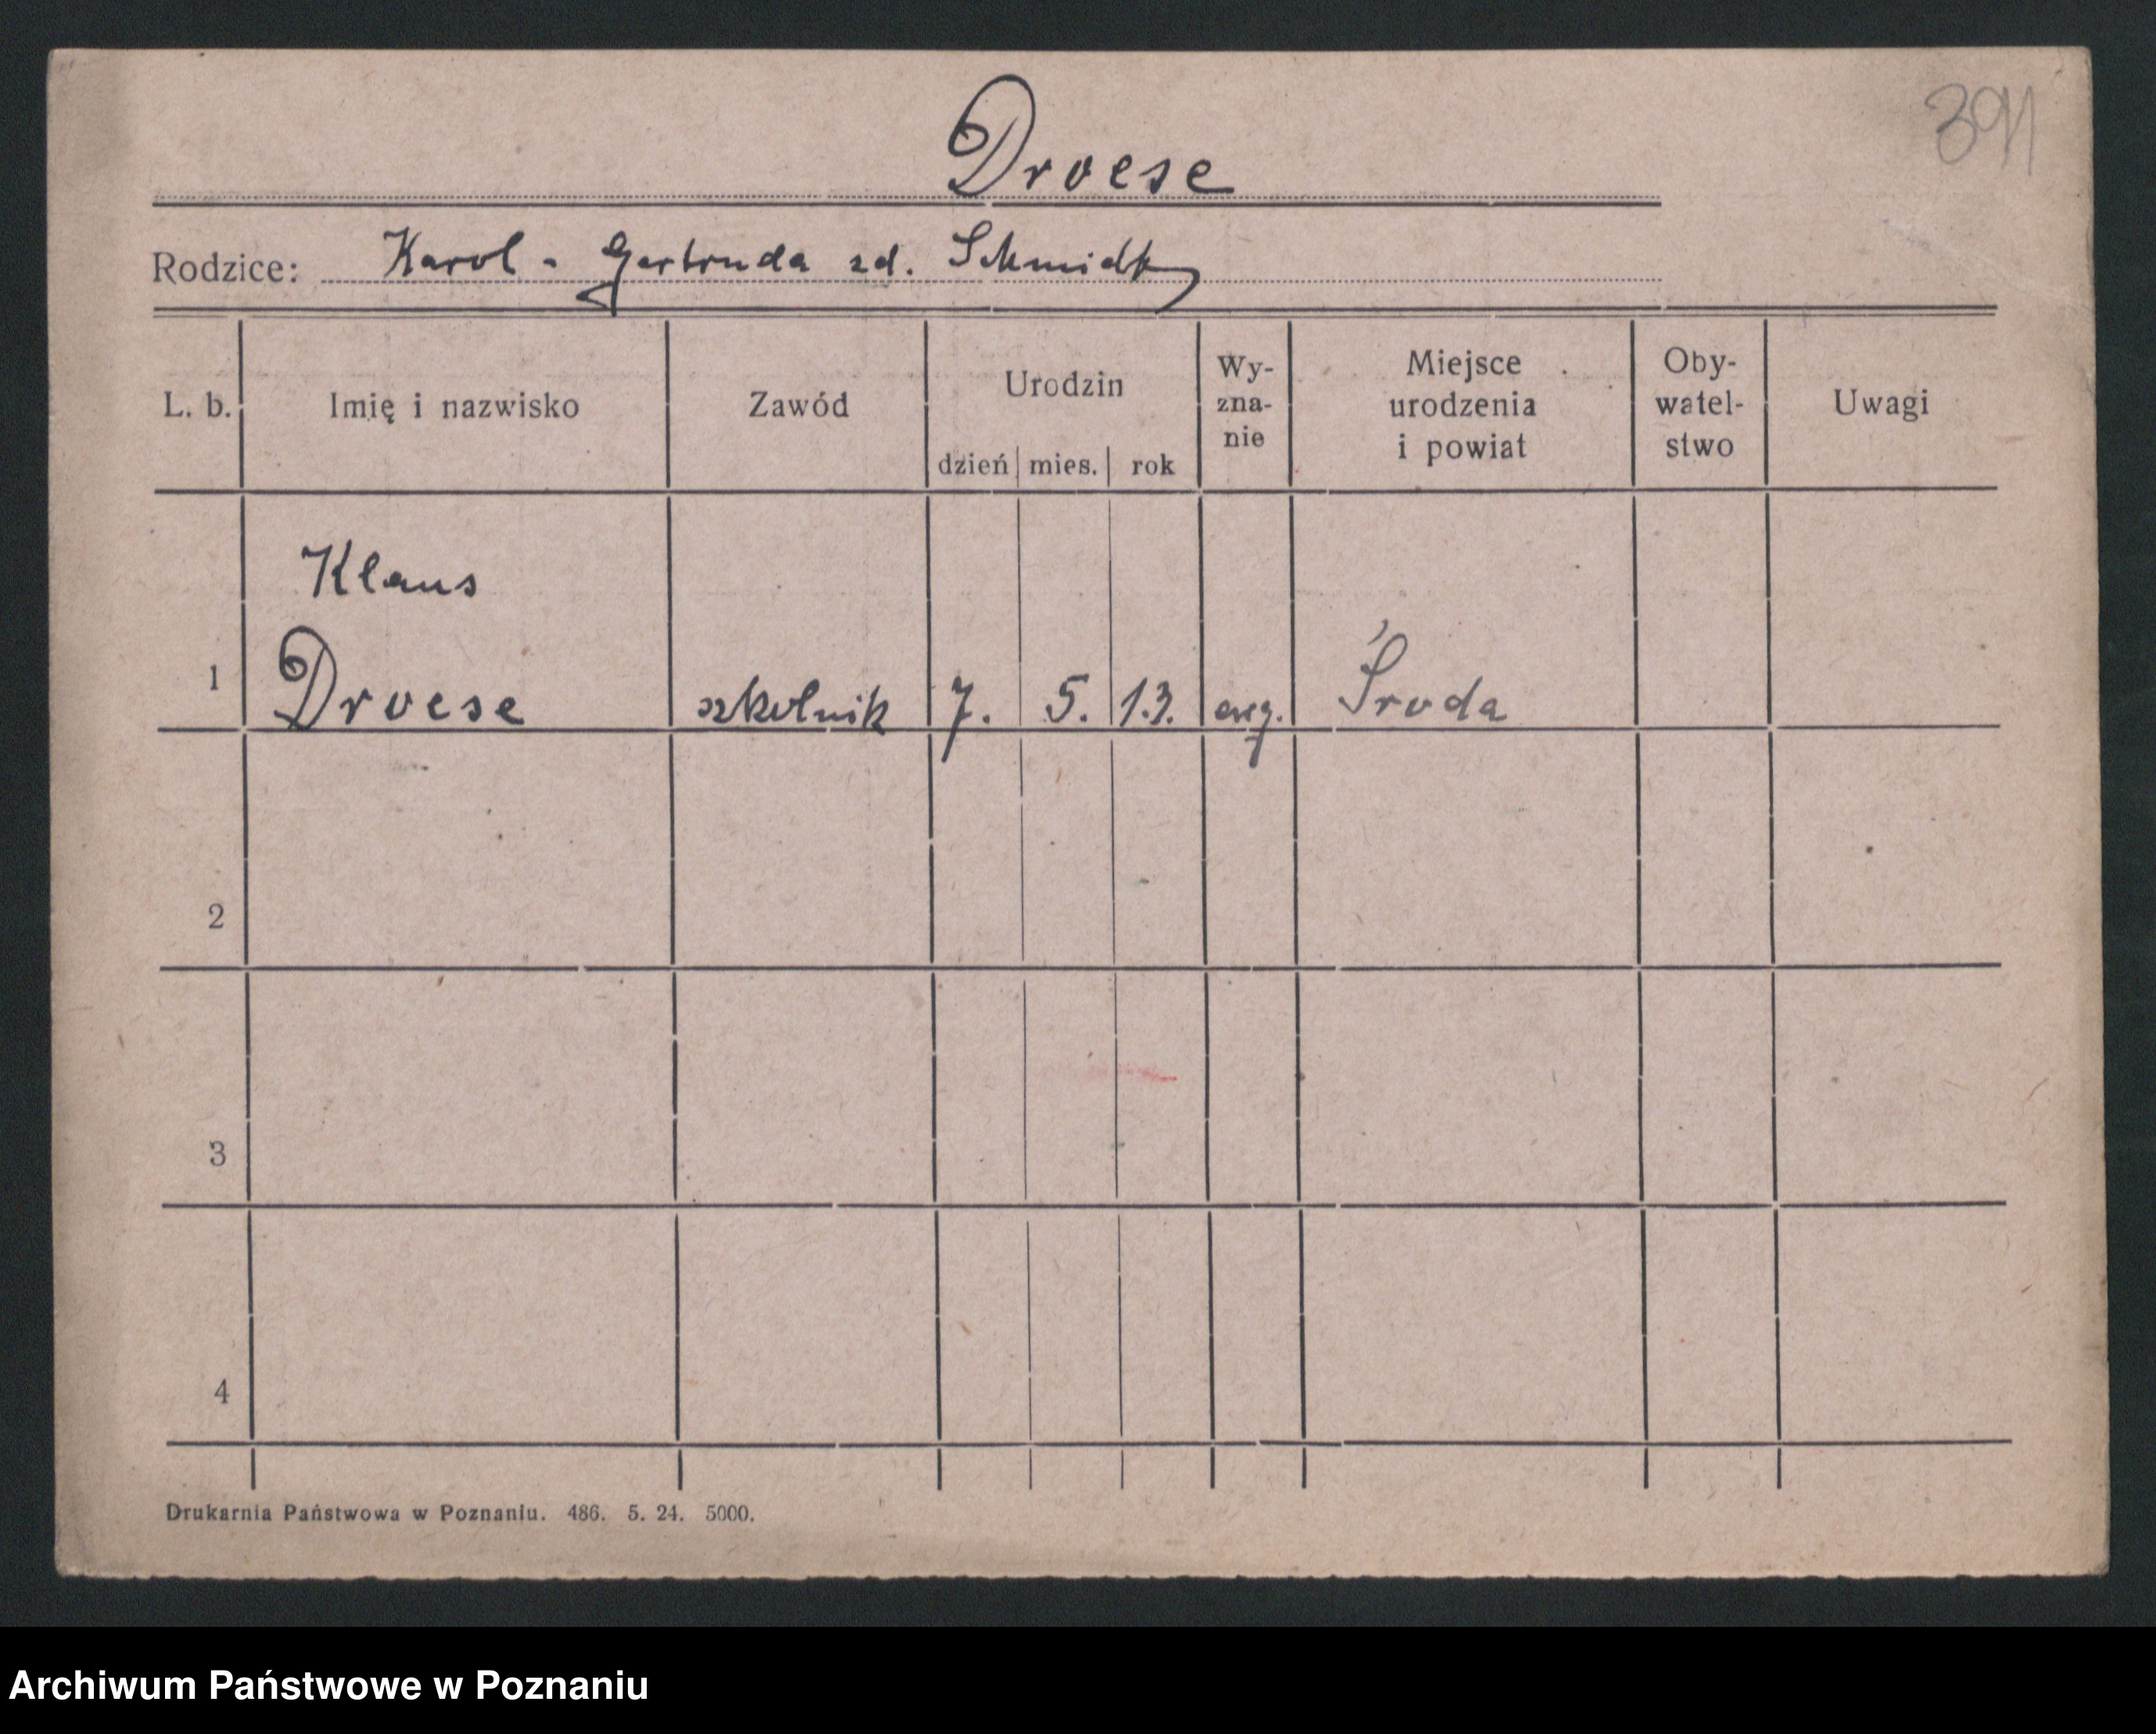 391
Droese
Rodzice: Karol - Gertruda zd. Schmidt
L. b. Imię i nazwisko Zawód Urodzin dzień mies. rok Wy-zna-nie Miejsce urodzenia i powiat Oby-watel-stwo Uwagi
Klaus
1 Droese szkolnik 7. 5. 13. ewg. Środa
2
3
4
Drukarnia Państwowa w Poznaniu. 486. 5. 24. 5000.
Archiwum Państwowe w Poznaniu